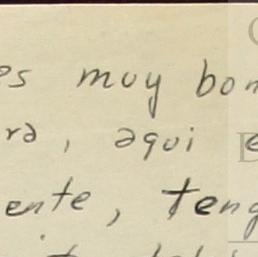 es muy bon
ra, aqui e
ente, teng